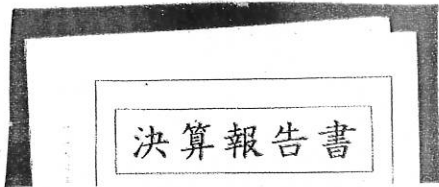 決算報告書